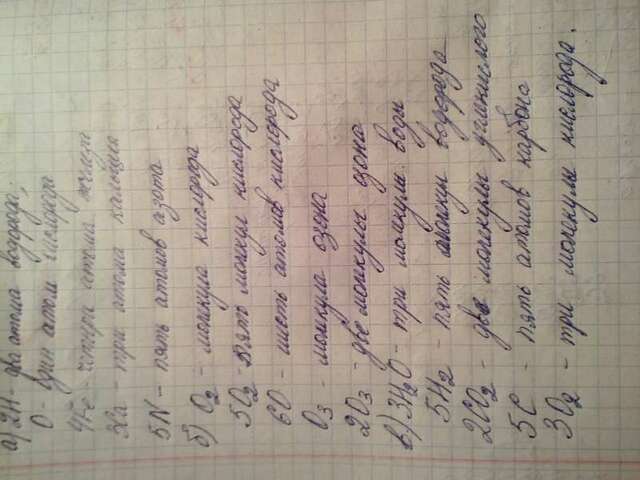 а) 2H - два атома водорода;
O - один атом кислорода
4Fe - четыре атома железа
3Ca - три атома кальция
5N - пять атомов азота
б) O2 - молекула кислорода
5O2 - пять молекул кислорода
6O - шесть атомов кислорода
O3 - молекула озона
2O3 - две молекулы озона
в) 3H2O - три молекулы воды
5H2 - пять молекул водорода
2CO2 - две молекулы углекислого
5C - пять атомов карбона
3O2 - три молекулы кислорода.